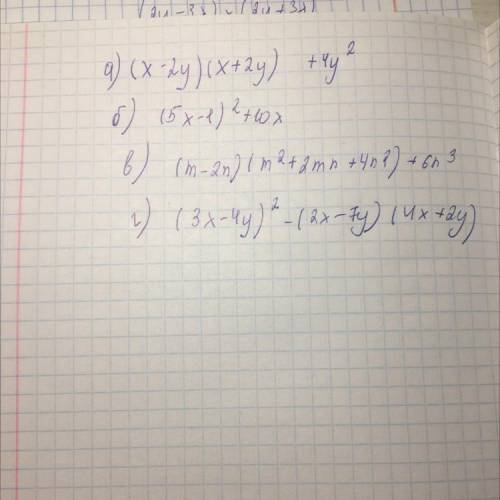 а) (x-2y)(x+2y) +4y²
б) (5x-1)²+10x
в) (m-2n)(m²+2mn+4n²)+6n³
г) (3x-4y)²-(2x-7y)(4x+2y)